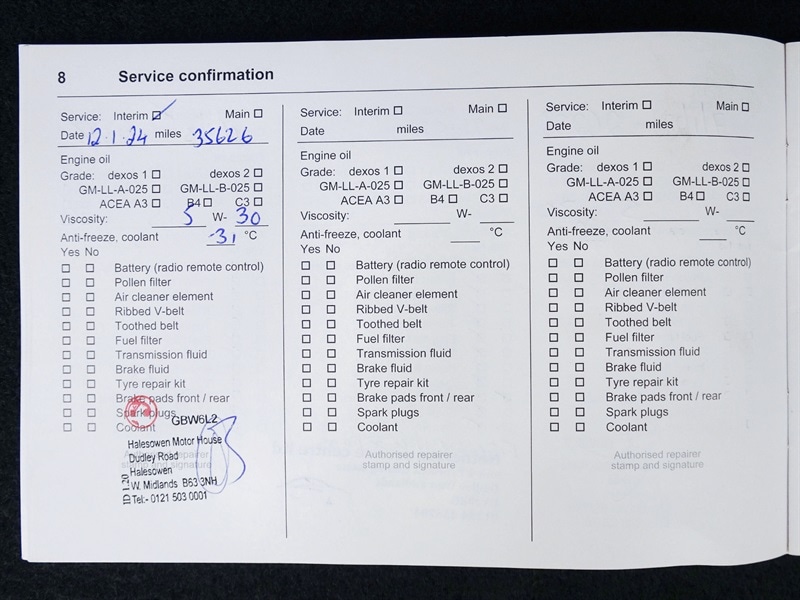 8 Service confirmation
Service: Interim ☑ Main ☐
Date 12.1.24 miles 35626
Engine oil
Grade: dexos 1 ☐ dexos 2 ☐
GM-LL-A-025 ☐ GM-LL-B-025 ☐
ACEA A3 ☐ B4 ☐ C3 ☐
Viscosity: 5 W- 30
Anti-freeze, coolant -31 °C
Yes No
☐ ☐ Battery (radio remote control)
☐ ☐ Pollen filter
☐ ☐ Air cleaner element
☐ ☐ Ribbed V-belt
☐ ☐ Toothed belt
☐ ☐ Fuel filter
☐ ☐ Transmission fluid
☐ ☐ Brake fluid
☐ ☐ Tyre repair kit
☐ ☐ Brake pads front / rear
☐ ☐ Spark plugs
☐ ☐ Coolant
Authorised repairer
stamp and signature
GBW6L2
Halesowen Motor House
Dudley Road
Halesowen
W. Midlands B63 3NH
Tel:- 0121 503 0001
ID 1.20
Service: Interim ☐ Main ☐
Date miles
Engine oil
Grade: dexos 1 ☐ dexos 2 ☐
GM-LL-A-025 ☐ GM-LL-B-025 ☐
ACEA A3 ☐ B4 ☐ C3 ☐
Viscosity: W-
Anti-freeze, coolant °C
Yes No
☐ ☐ Battery (radio remote control)
☐ ☐ Pollen filter
☐ ☐ Air cleaner element
☐ ☐ Ribbed V-belt
☐ ☐ Toothed belt
☐ ☐ Fuel filter
☐ ☐ Transmission fluid
☐ ☐ Brake fluid
☐ ☐ Tyre repair kit
☐ ☐ Brake pads front / rear
☐ ☐ Spark plugs
☐ ☐ Coolant
Authorised repairer
stamp and signature
Service: Interim ☐ Main ☐
Date miles
Engine oil
Grade: dexos 1 ☐ dexos 2 ☐
GM-LL-A-025 ☐ GM-LL-B-025 ☐
ACEA A3 ☐ B4 ☐ C3 ☐
Viscosity: W-
Anti-freeze, coolant °C
Yes No
☐ ☐ Battery (radio remote control)
☐ ☐ Pollen filter
☐ ☐ Air cleaner element
☐ ☐ Ribbed V-belt
☐ ☐ Toothed belt
☐ ☐ Fuel filter
☐ ☐ Transmission fluid
☐ ☐ Brake fluid
☐ ☐ Tyre repair kit
☐ ☐ Brake pads front / rear
☐ ☐ Spark plugs
☐ ☐ Coolant
Authorised repairer
stamp and signature